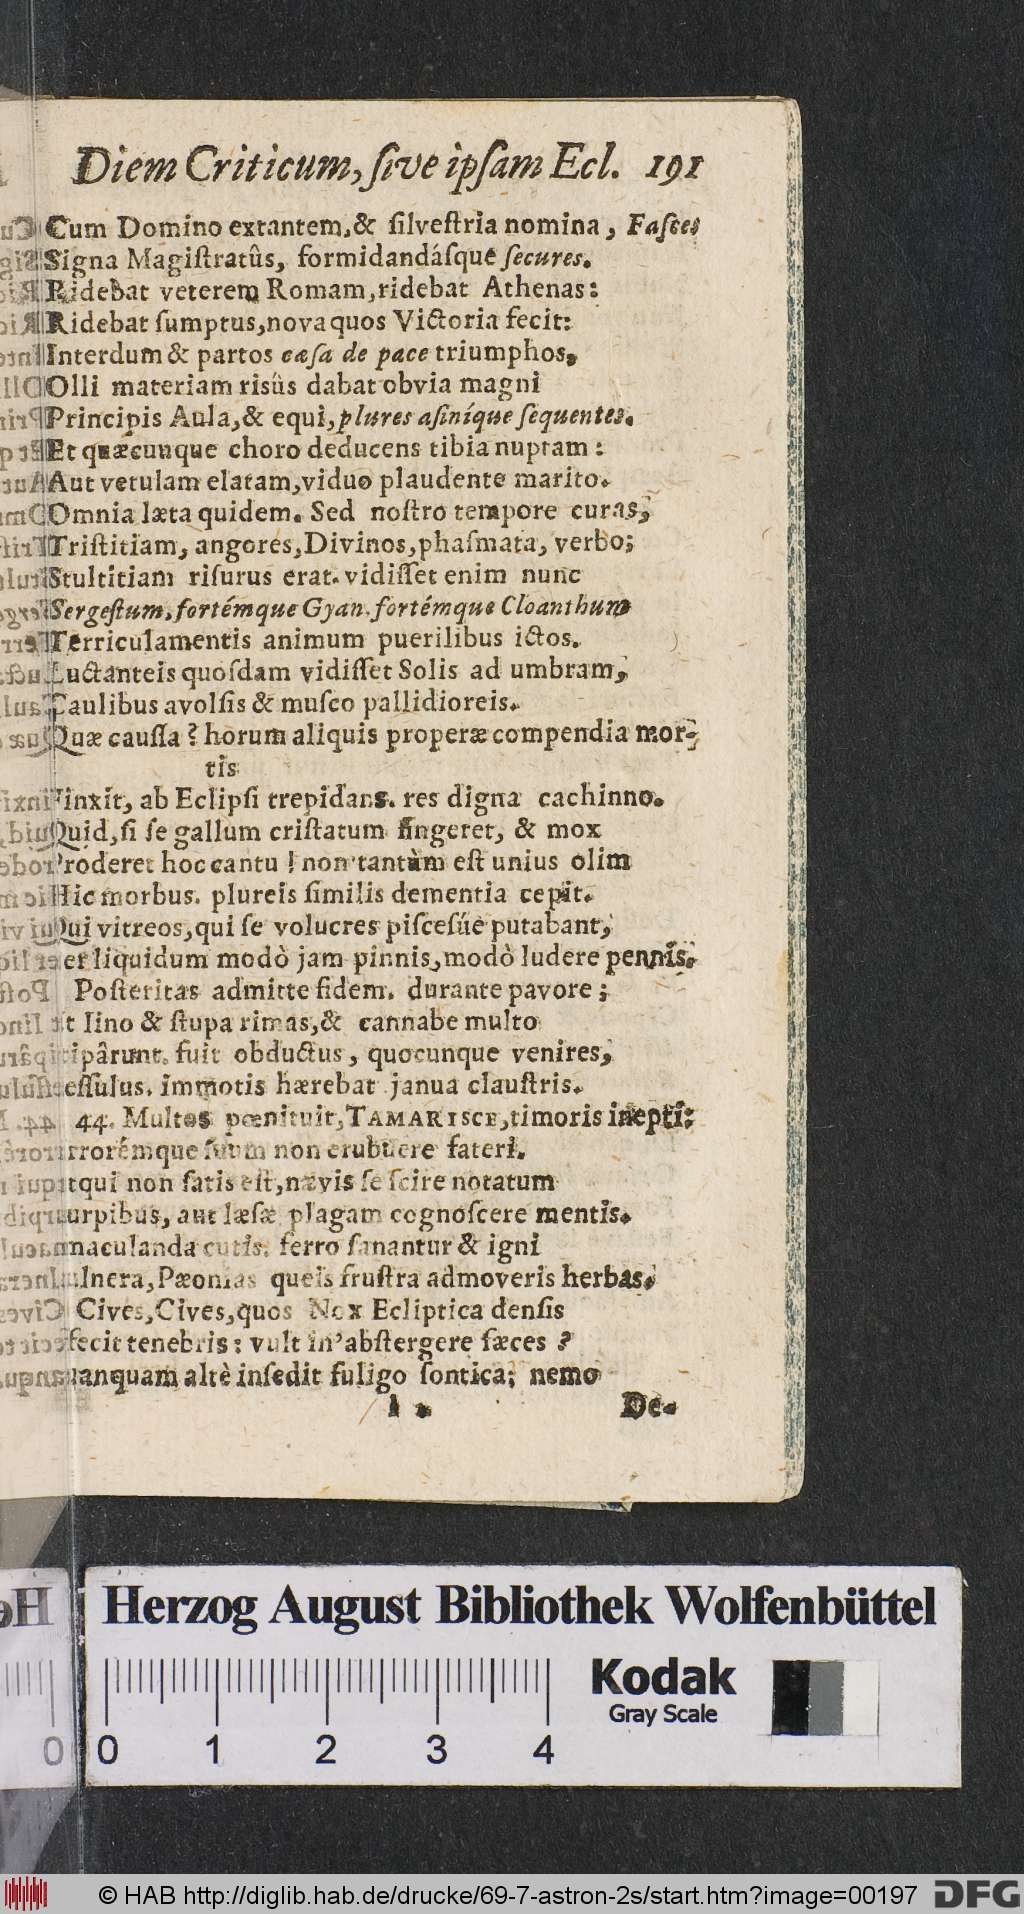 Diem Criticum, sive ipsam Ecl. 191
Cum Domino extantem, & silvestria nomina, Fasces
Signa Magistratûs, formidandásque secures.
Ridebat veterem Romam, ridebat Athenas:
Ridebat sumptus, nova quos Victoria fecit:
Interdum & partos cæsa de pace triumphos,
Olli materiam risûs dabat obvia magni
Principis Aula, & equi, plures asiníque sequentes.
Et quæcunque choro deducens tibia nuptam:
Aut vetulam elatam, viduo plaudente marito.
Omnia læta quidem. Sed nostro tempore curas,
Tristitiam, angores, Divinos, phasmata, verbo;
Stultitiam risurus erat. vidisset enim nunc
Sergestum, fortémque Gyan. fortémque Cloanthum
Terriculamentis animum puerilibus ictos.
Luctanteis quosdam vidisset Solis ad umbram,
Caulibus avolsis & musco pallidioreis.
Quæ caussa? horum aliquis properæ compendia mor-
tis
Finxit, ab Eclipsi trepidans. res digna cachinno.
Quid, si se gallum cristatum fingeret, & mox
Proderet hoc cantu! non tantùm est unius olim
Hic morbus. plureis similis dementia cepit.
Qui vitreos, qui se volucres piscesúe putabant,
er liquidum modò jam pinnis, modò ludere pennis.
Posteritas admitte fidem. durante pavore;
t lino & stupa rimas, & cannabe multo
tipârunt. fuit obductus, quocunque venires,
essulus. immotis hærebat janua claustris.
44. Multos pœnituit, TAMARISCE, timoris inepti:
rrorémque suum non erubuere fateri.
tqui non satis est, nævis se scire notatum
urpibus, aut læsæ plagam cognoscere mentis.
maculanda cutis. ferro sanantur & igni
ulnera, Pæonias queis frustra admoveris herbas.
Cives, Cives, quos Nox Ecliptica densis
fecit tenebris: vult in' abstergere fæces?
uanquam altè insedit fuligo sontica; nemo
De-
Herzog August Bibliothek Wolfenbüttel
Kodak
Gray Scale
0 0 1 2 3 4
© HAB http://diglib.hab.de/drucke/69-7-astron-2s/start.htm?image=00197 DFG